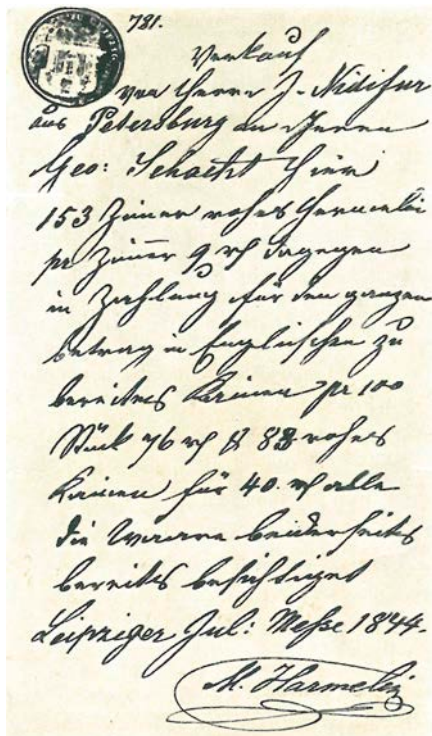 781.
Verkauf
von Herrn J. Nidifur
aus Petersburg an Herrn
Geo: Schacht hier
153 Zimer rohes Hermelin
pr Zimer 9 rf dagegen
in Zahlung für den ganzen
betrag in Englischen zu
bereitetes Kaninen pr 100
Stück 76 rf & 83 rohes
Kaninen für 40. rf alle
die Waare beiderseits
bereits besichtiget
Leipziger Jul: Messe 1844.
M. Harmelin